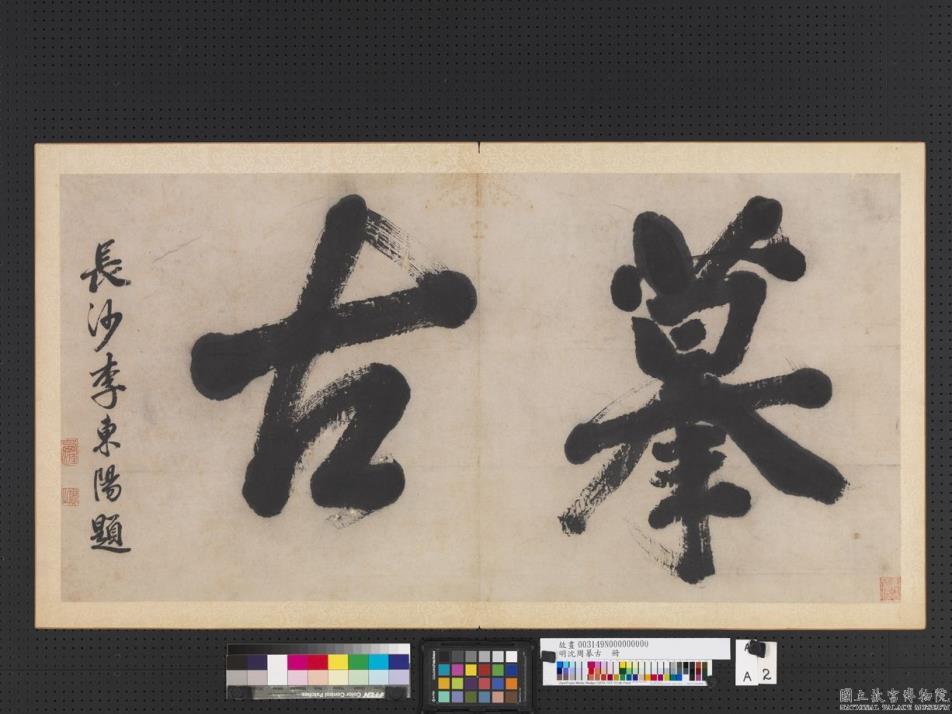 摹古
長沙李東陽題
故畫 003149N000000000
明沈周摹古 冊
A 2
國立故宮博物院
NATIONAL PALACE MUSEUM